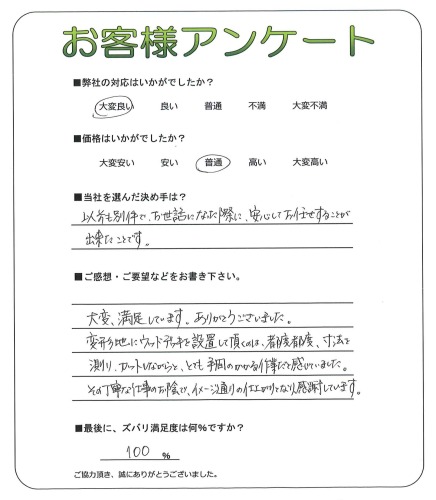 お客様アンケート
■弊社の対応はいかがでしたか?
大変良い 良い 普通 不満 大変不満
■価格はいかがでしたか?
大変安い 安い 普通 高い 大変高い
■当社を選んだ決め手は?
以前も別件で、お世話になった際に、安心してお任せすることが
出来たことです。
■ご感想・ご要望などをお書き下さい。
大変、満足しています。ありがとうございました。
変形地にウッドデッキを設置して頂くのは、都度都度、寸法を
測り、カットしながらと、とても手間のかかる作業だと感じていました。
その丁寧な仕事のお陰で、イメージ通りの仕上がりとなり感謝しています。
■最後に、ズバリ満足度は何%ですか?
100 %
ご協力頂き、誠にありがとうございました。